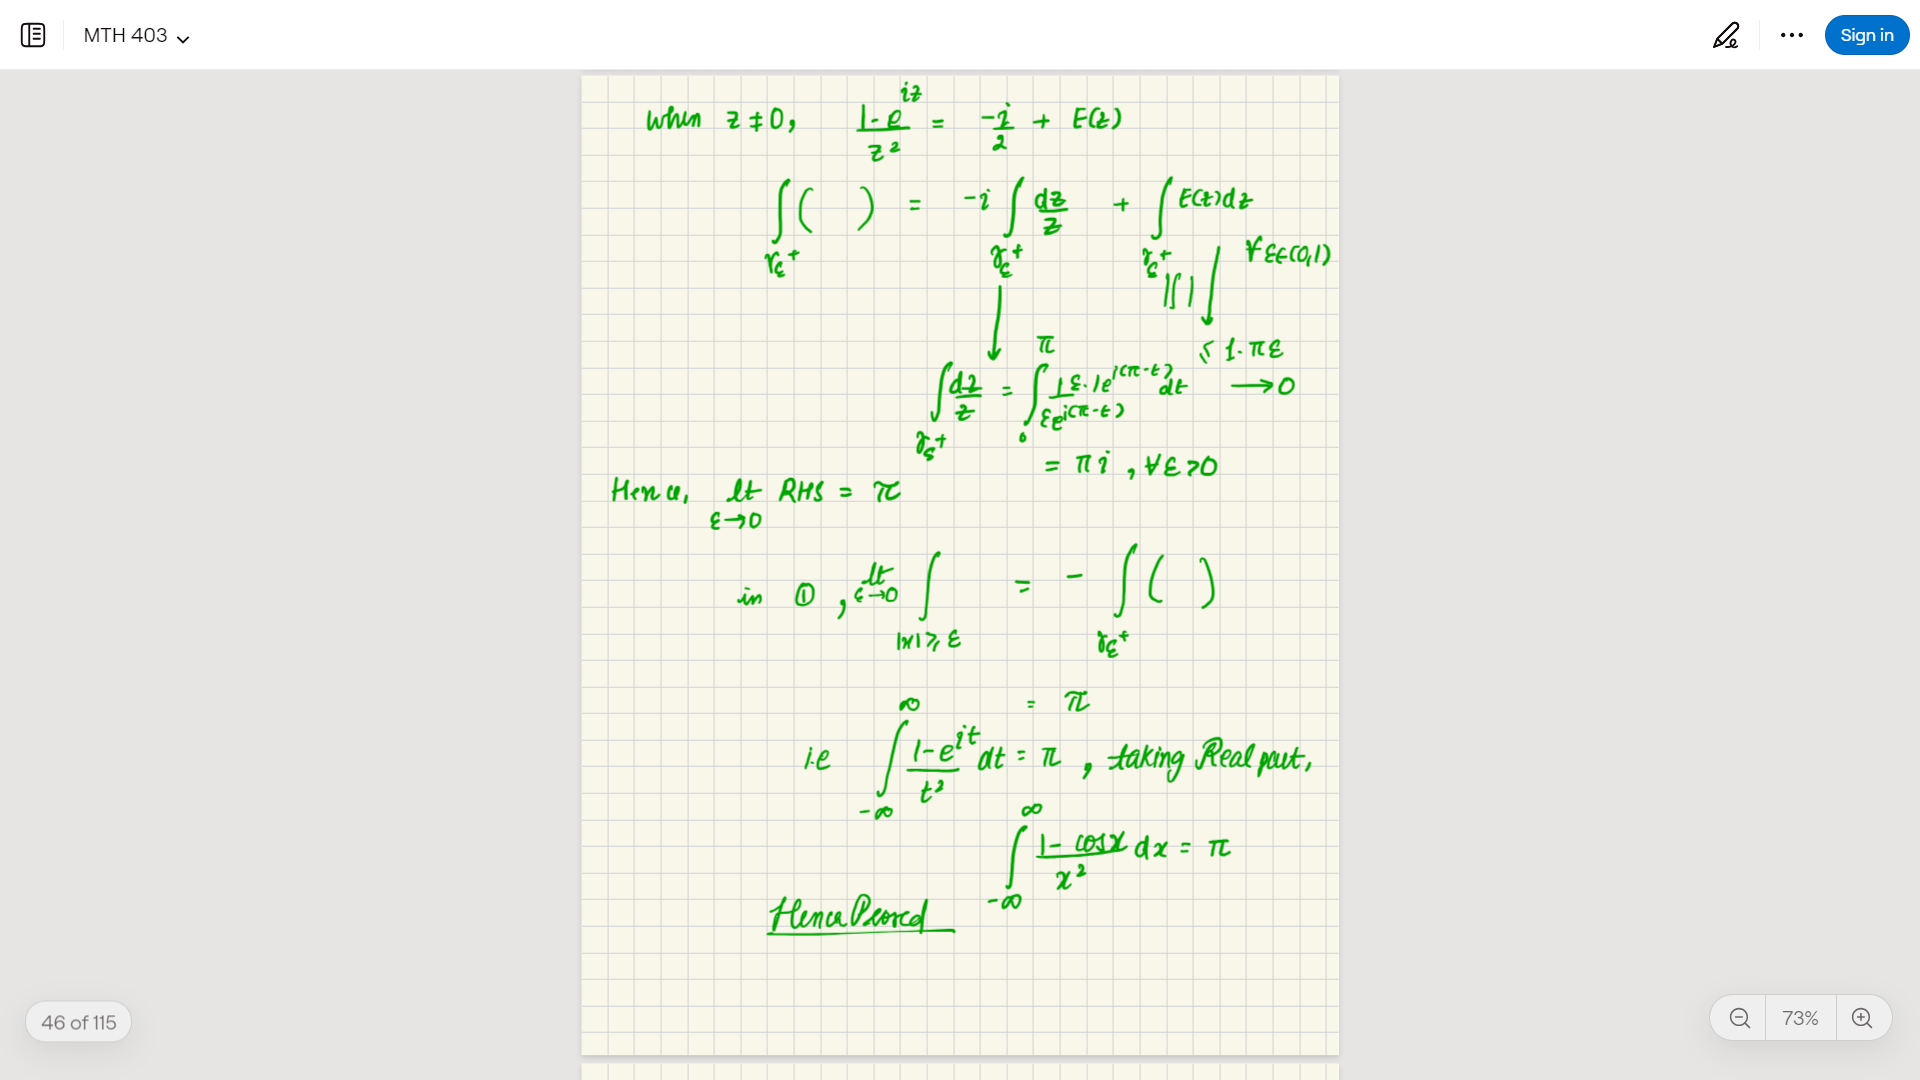 MTH 403
Sign in
when z ≠ 0, (1-e^{iz})/z² = -i/2 + E(z)
∫_{γ_ε^+} ( ) = -i ∫_{γ_ε^+} dz/z + ∫_{γ_ε^+} E(z)dz
∀ ε∈(0,1)
|∫ |
≤ 1·πε
∫_{γ_ε^+} dz/z = ∫_0^π 1/(εe^{i(π-t)}) ε·ie^{i(π-t)} dt → 0
= πi , ∀ ε>0
Hence, lt_{ε→0} RHS = π
in ①, lt_{ε→0} ∫_{|x|≥ε} = - ∫_{γ_ε^+} ( )
= π
i.e ∫_{-∞}^{∞} (1-e^{it})/t² dt = π , taking Real part,
∫_{-∞}^{∞} (1- cosx)/x² dx = π
Hence Proved
46 of 115
73%